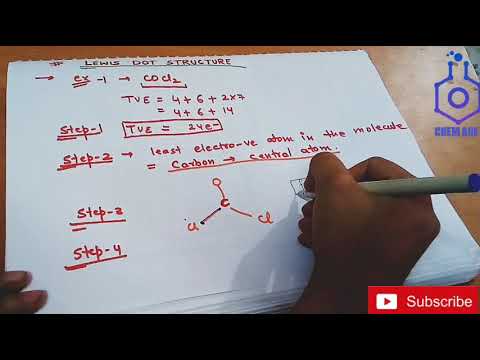 # LEWIS DOT STRUCTURE
→ ex-1 → COCl2
TVE = 4+6+2x7
= 4+6+14
Step-1 TVE = 24e-
Step-2 → least electro-ve atom in the molecule
= Carbon → central atom.
O
Step-3 C
Cl Cl
Step-4
CHEM ADDA
Subscribe